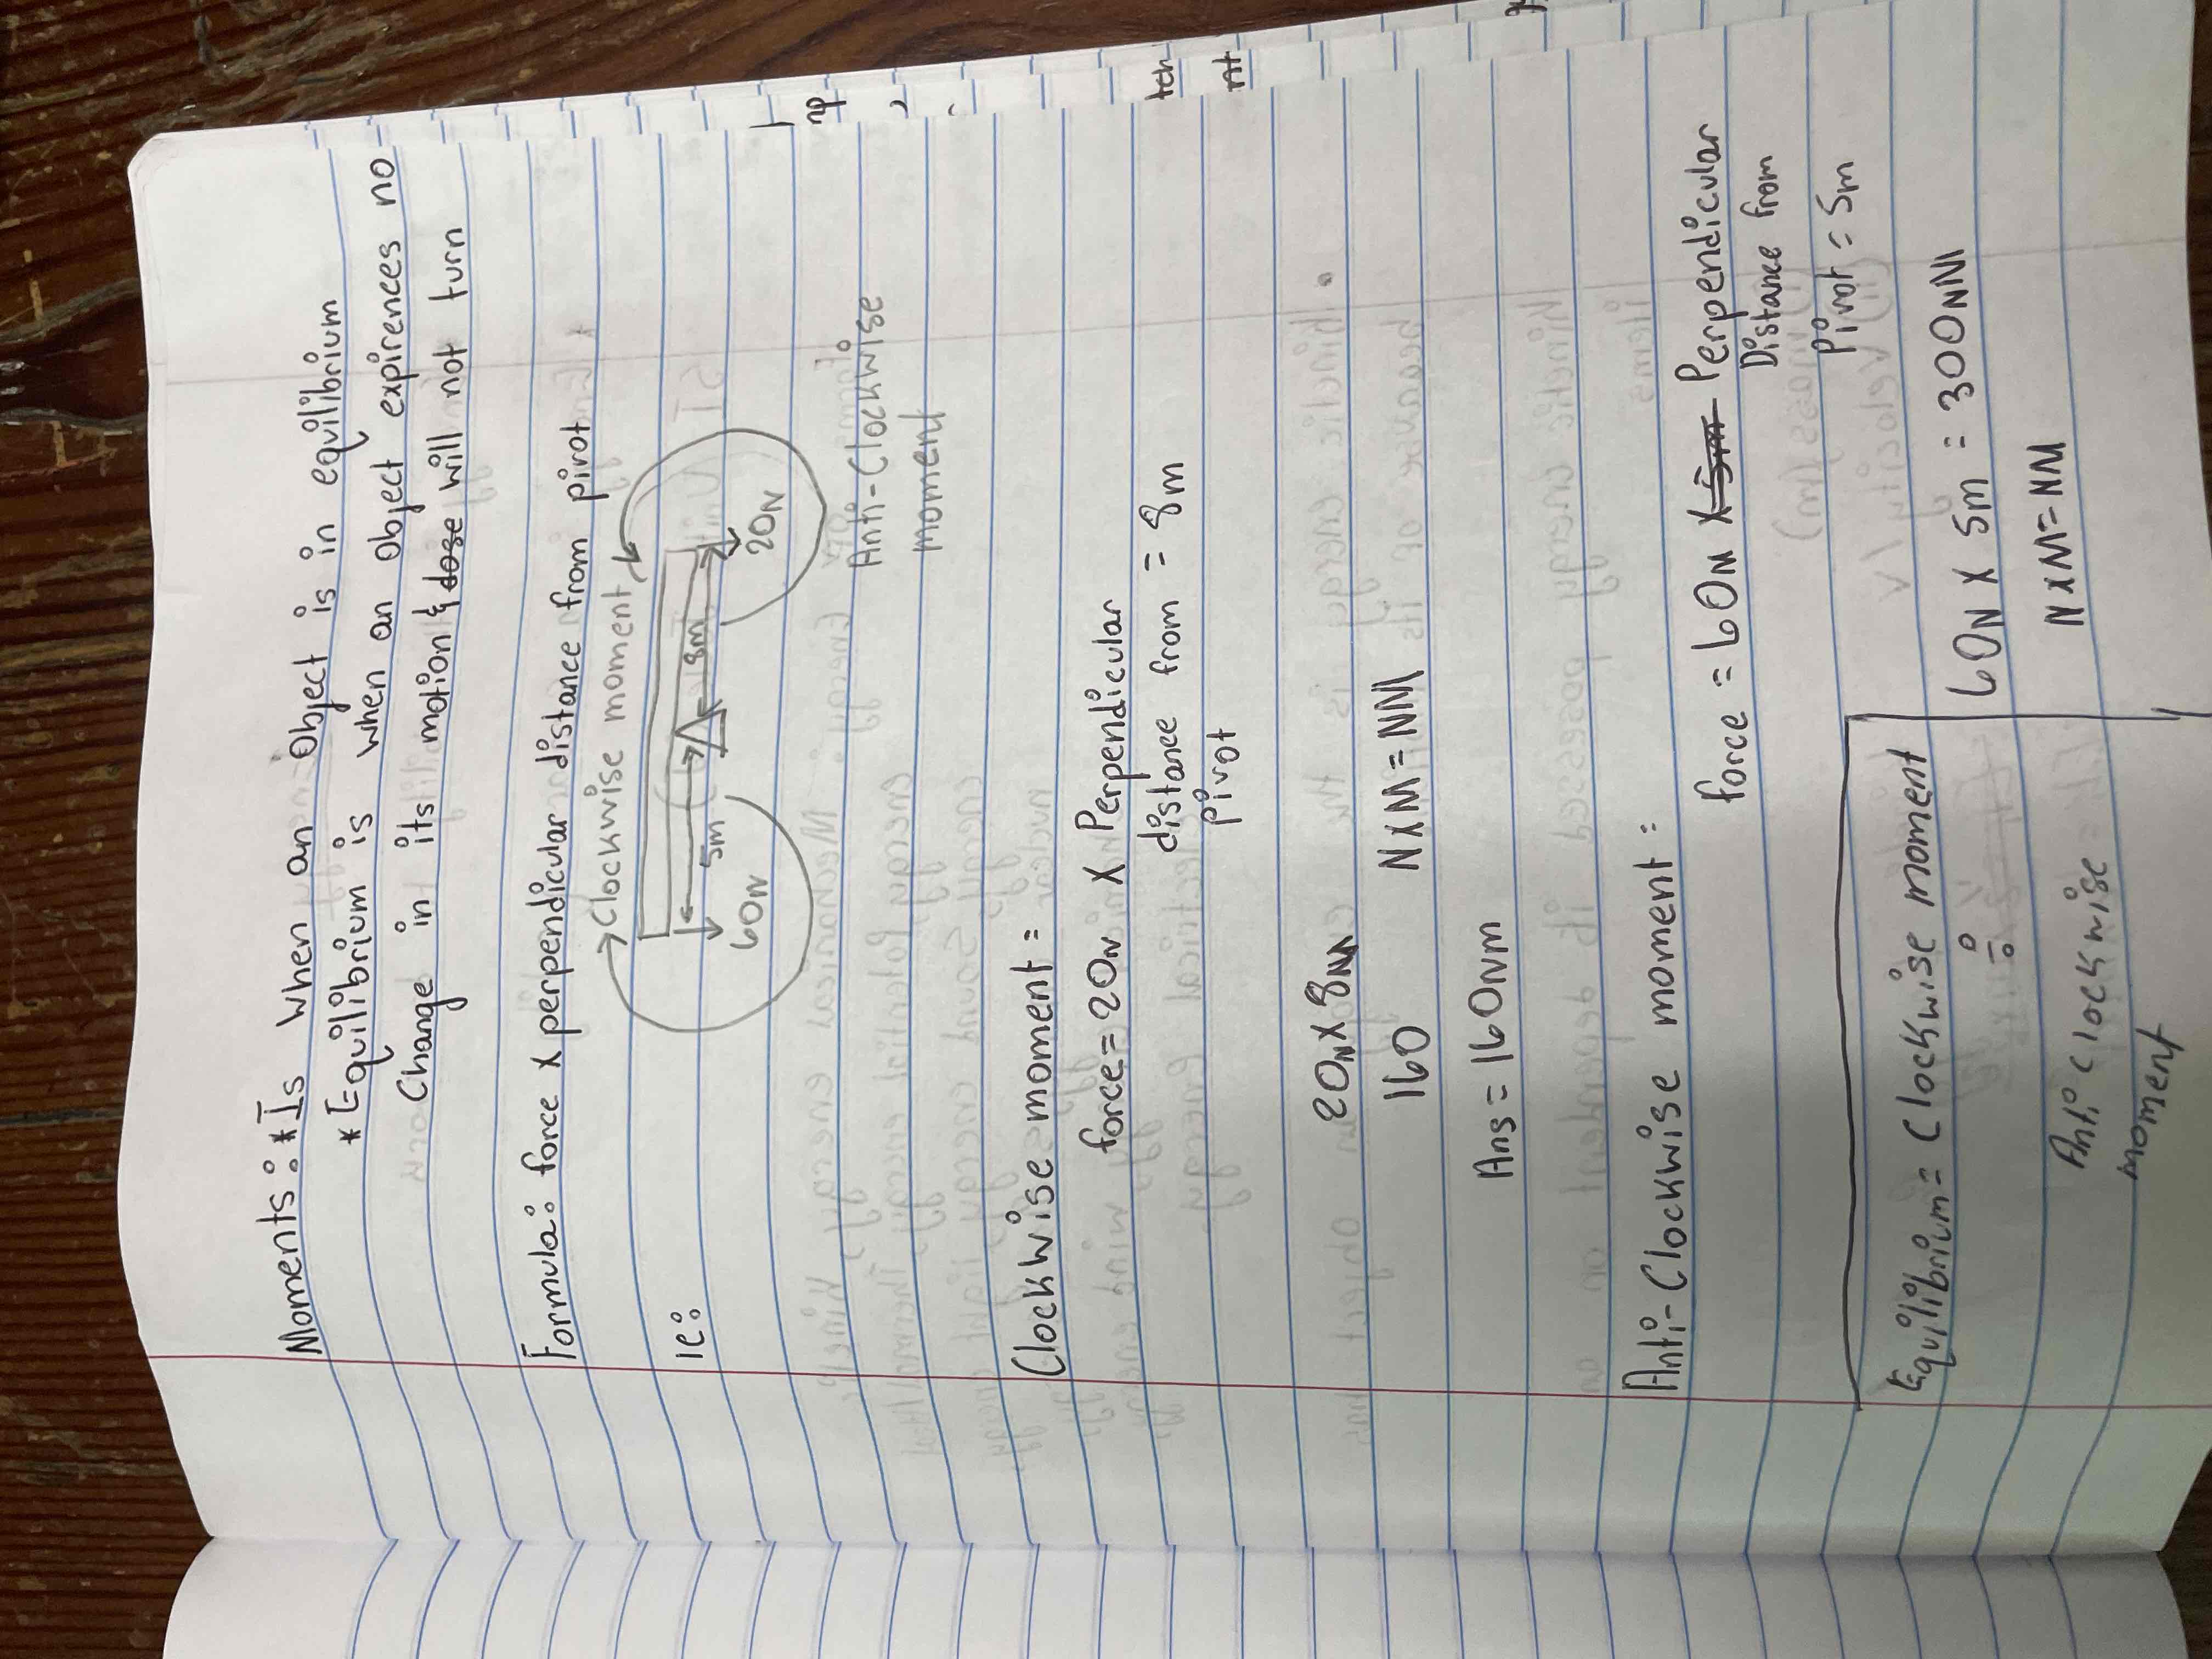 Moments: * Is when an object is in equilibrium
* Equilibrium is when an object expirences no
Change in its motion & dose will not turn
Formula: force x perpendicular distance from pivot
Clockwise moment
ie:
5m
8m
60N
20N
Anti-Clockwise
moment
Clockwise moment =
force = 20N x Perpendicular
distance from = 8m
pivot
20N x 8m
160 NxM = NM
Ans = 160Nm
Anti-Clockwise moment =
force = 60N x 5m Perpendicular
Distance from
Pivot = 5m
Equilibrium = Clockwise moment
÷
Anti Clockwise
moment
60N x 5m = 300NM
NxM = NM